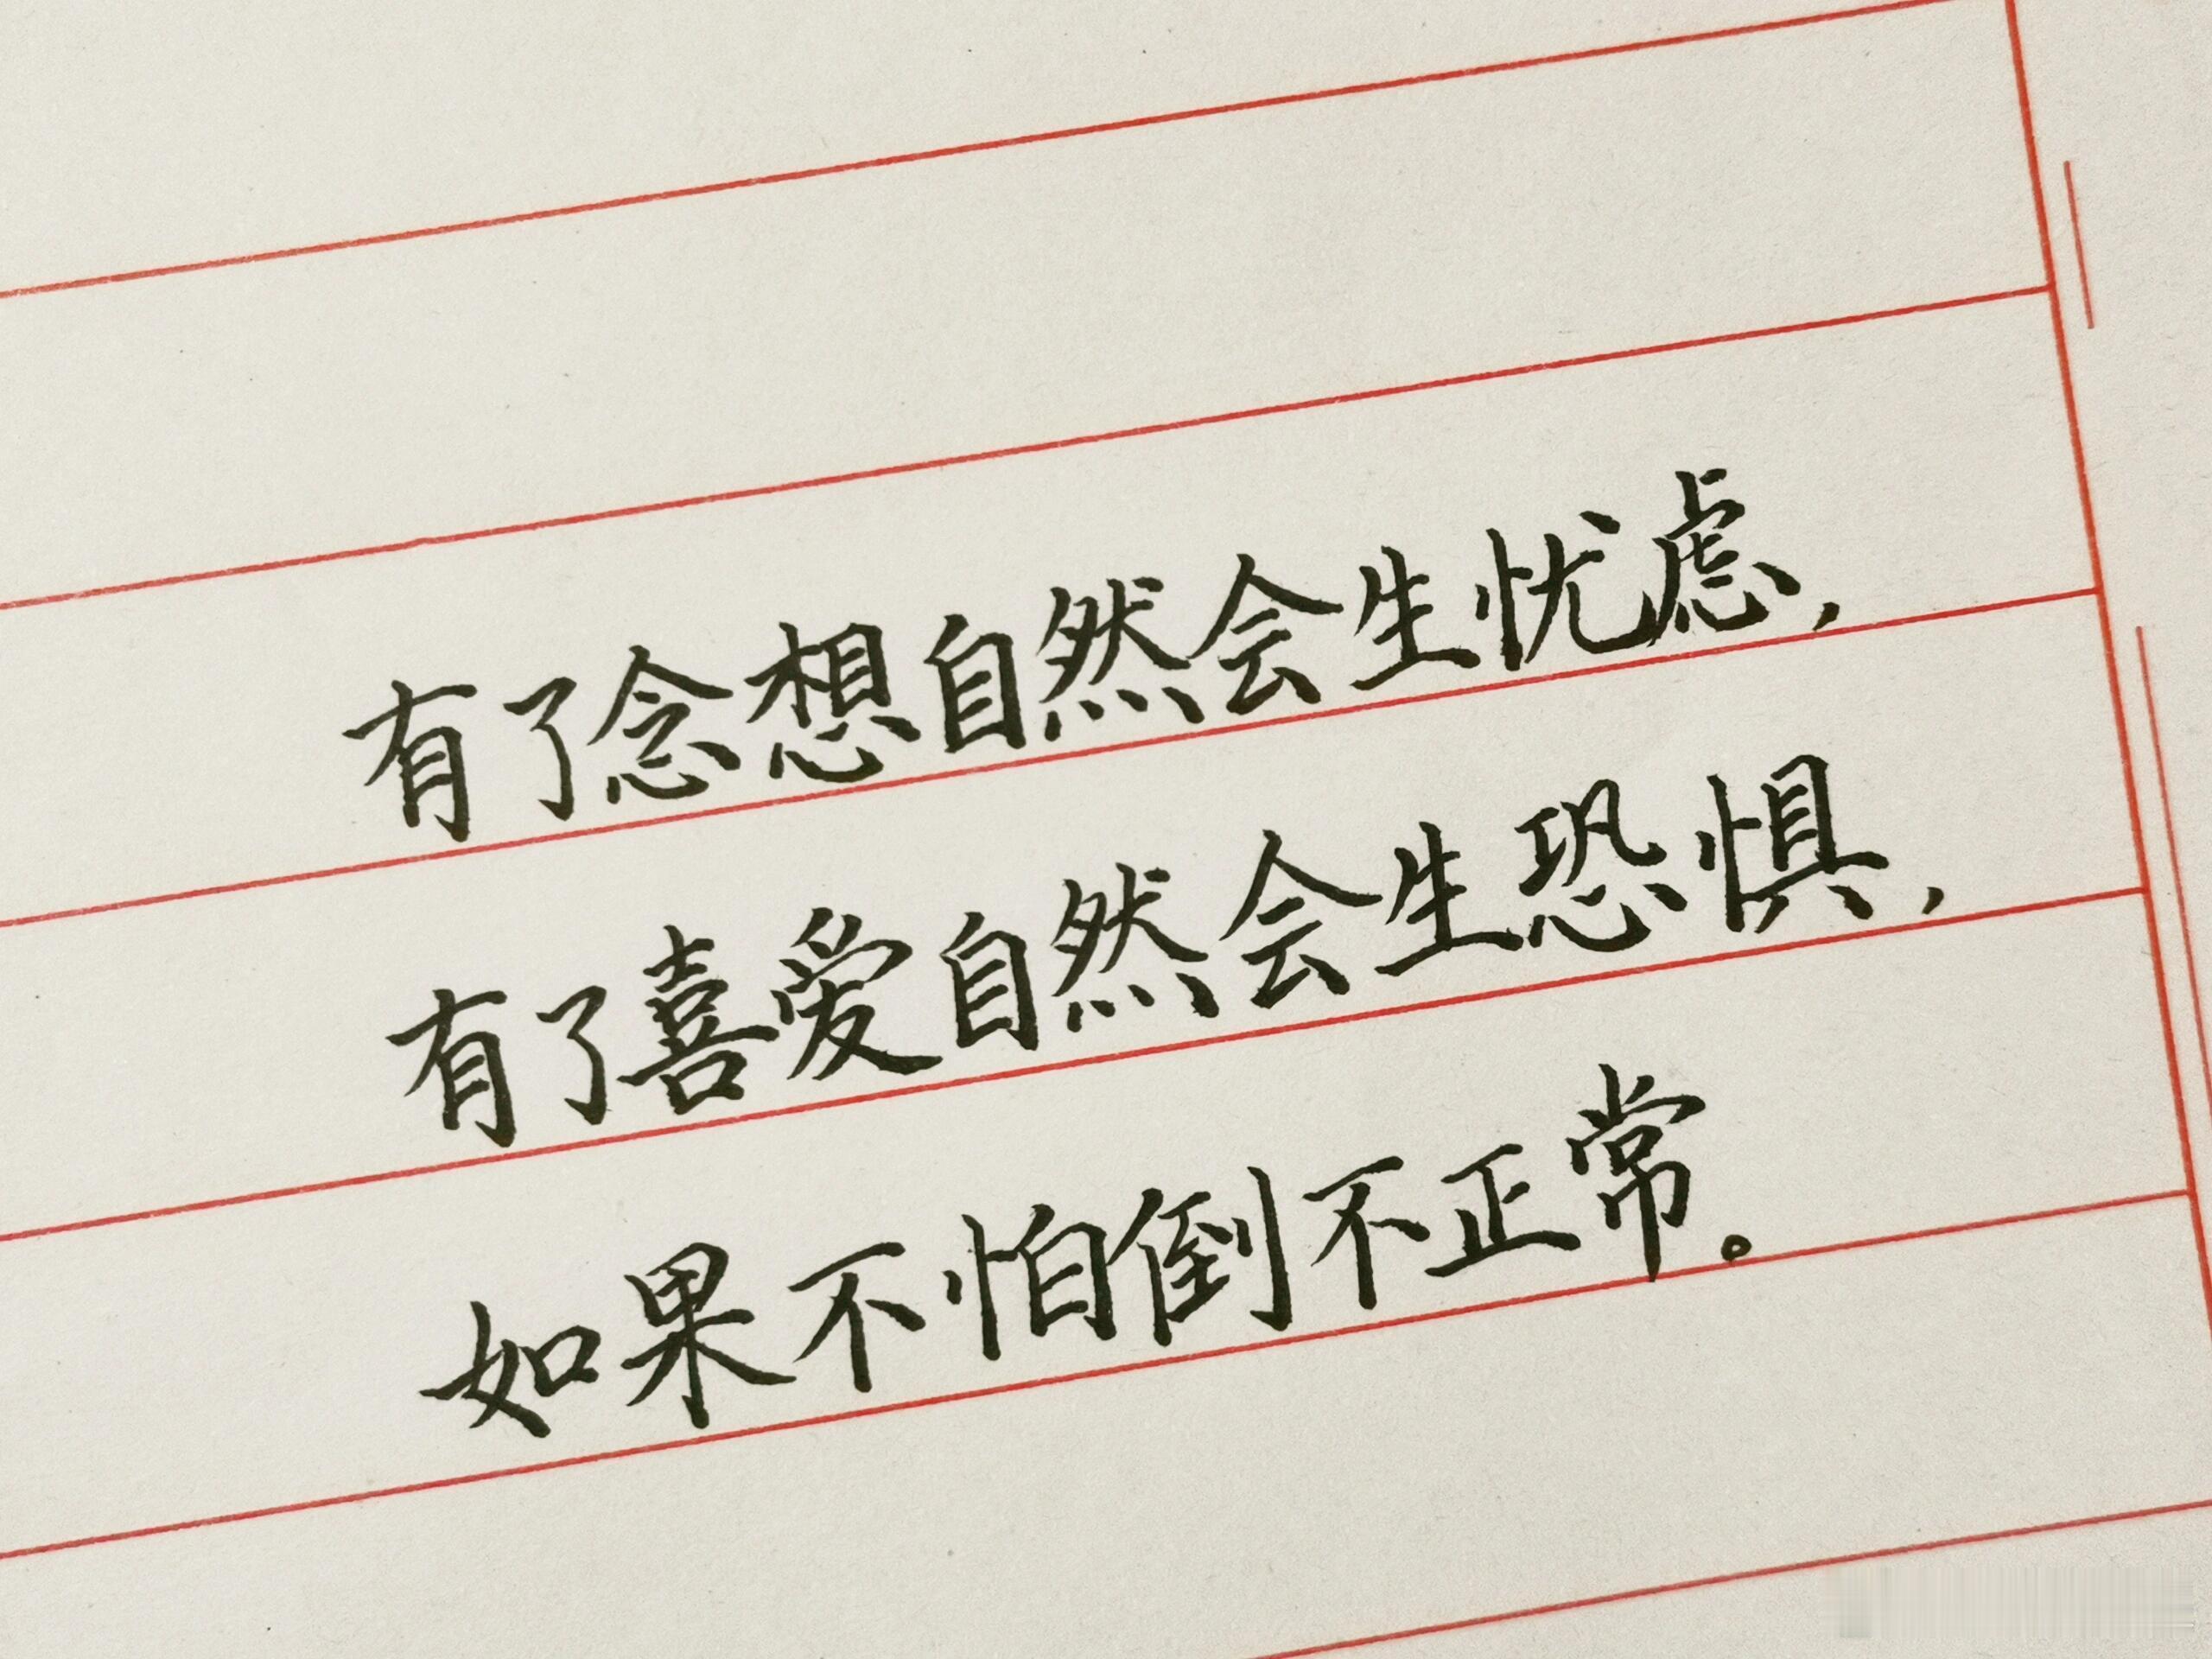 有了念想自然会生忧虑,
有了喜爱自然会生恐惧,
如果不怕倒不正常。